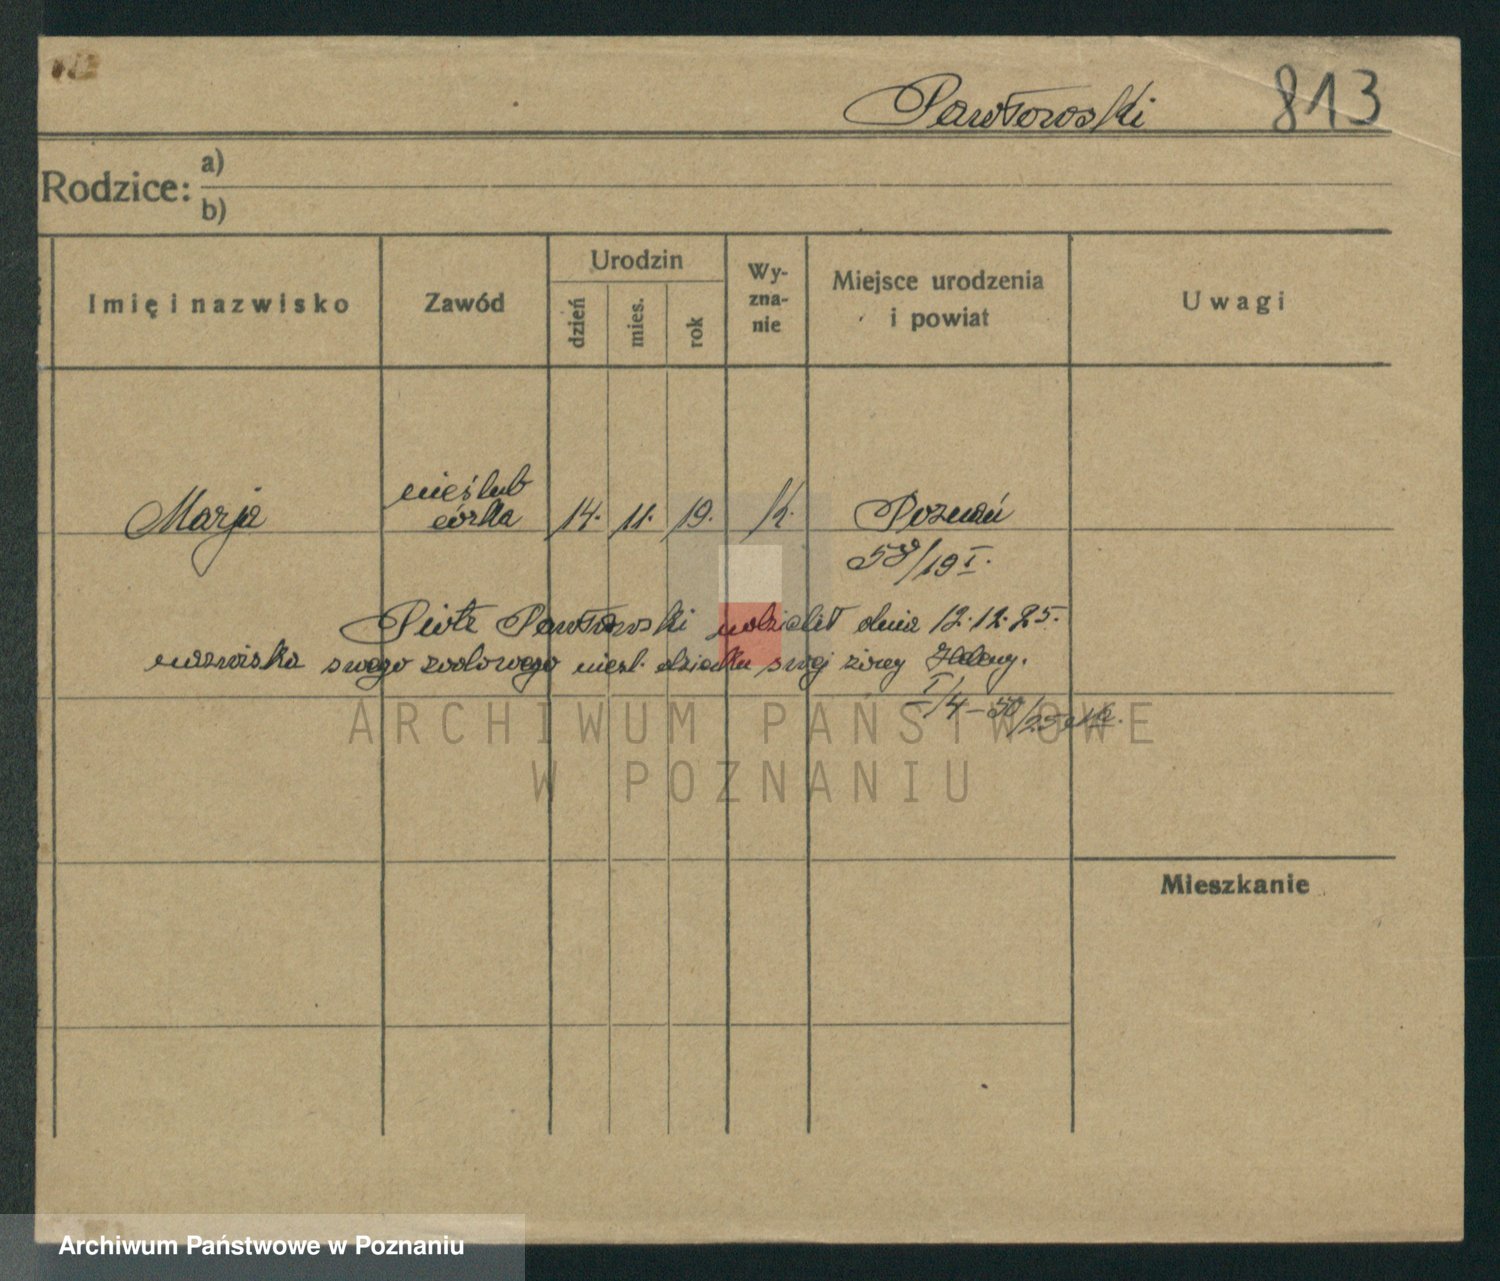 Pawłowski 813
Rodzice: a)
b)
Imię i nazwisko
Zawód
Urodzin
dzień
mies.
rok
Wy-
zna-
nie
Miejsce urodzenia
i powiat
Uwagi
Marja
nieślub
córka
14. 11. 19. k.
Poznań
/19 I.
Piotr Pawłowski udzielił dnia 12.12.25.
nazwiska swego rodowego nieśl. dziecku swej żony Heleny.
I/4 –
ARCHIWUM PAŃSTWOWE
W POZNANIU
Mieszkanie
Archiwum Państwowe w Poznaniu